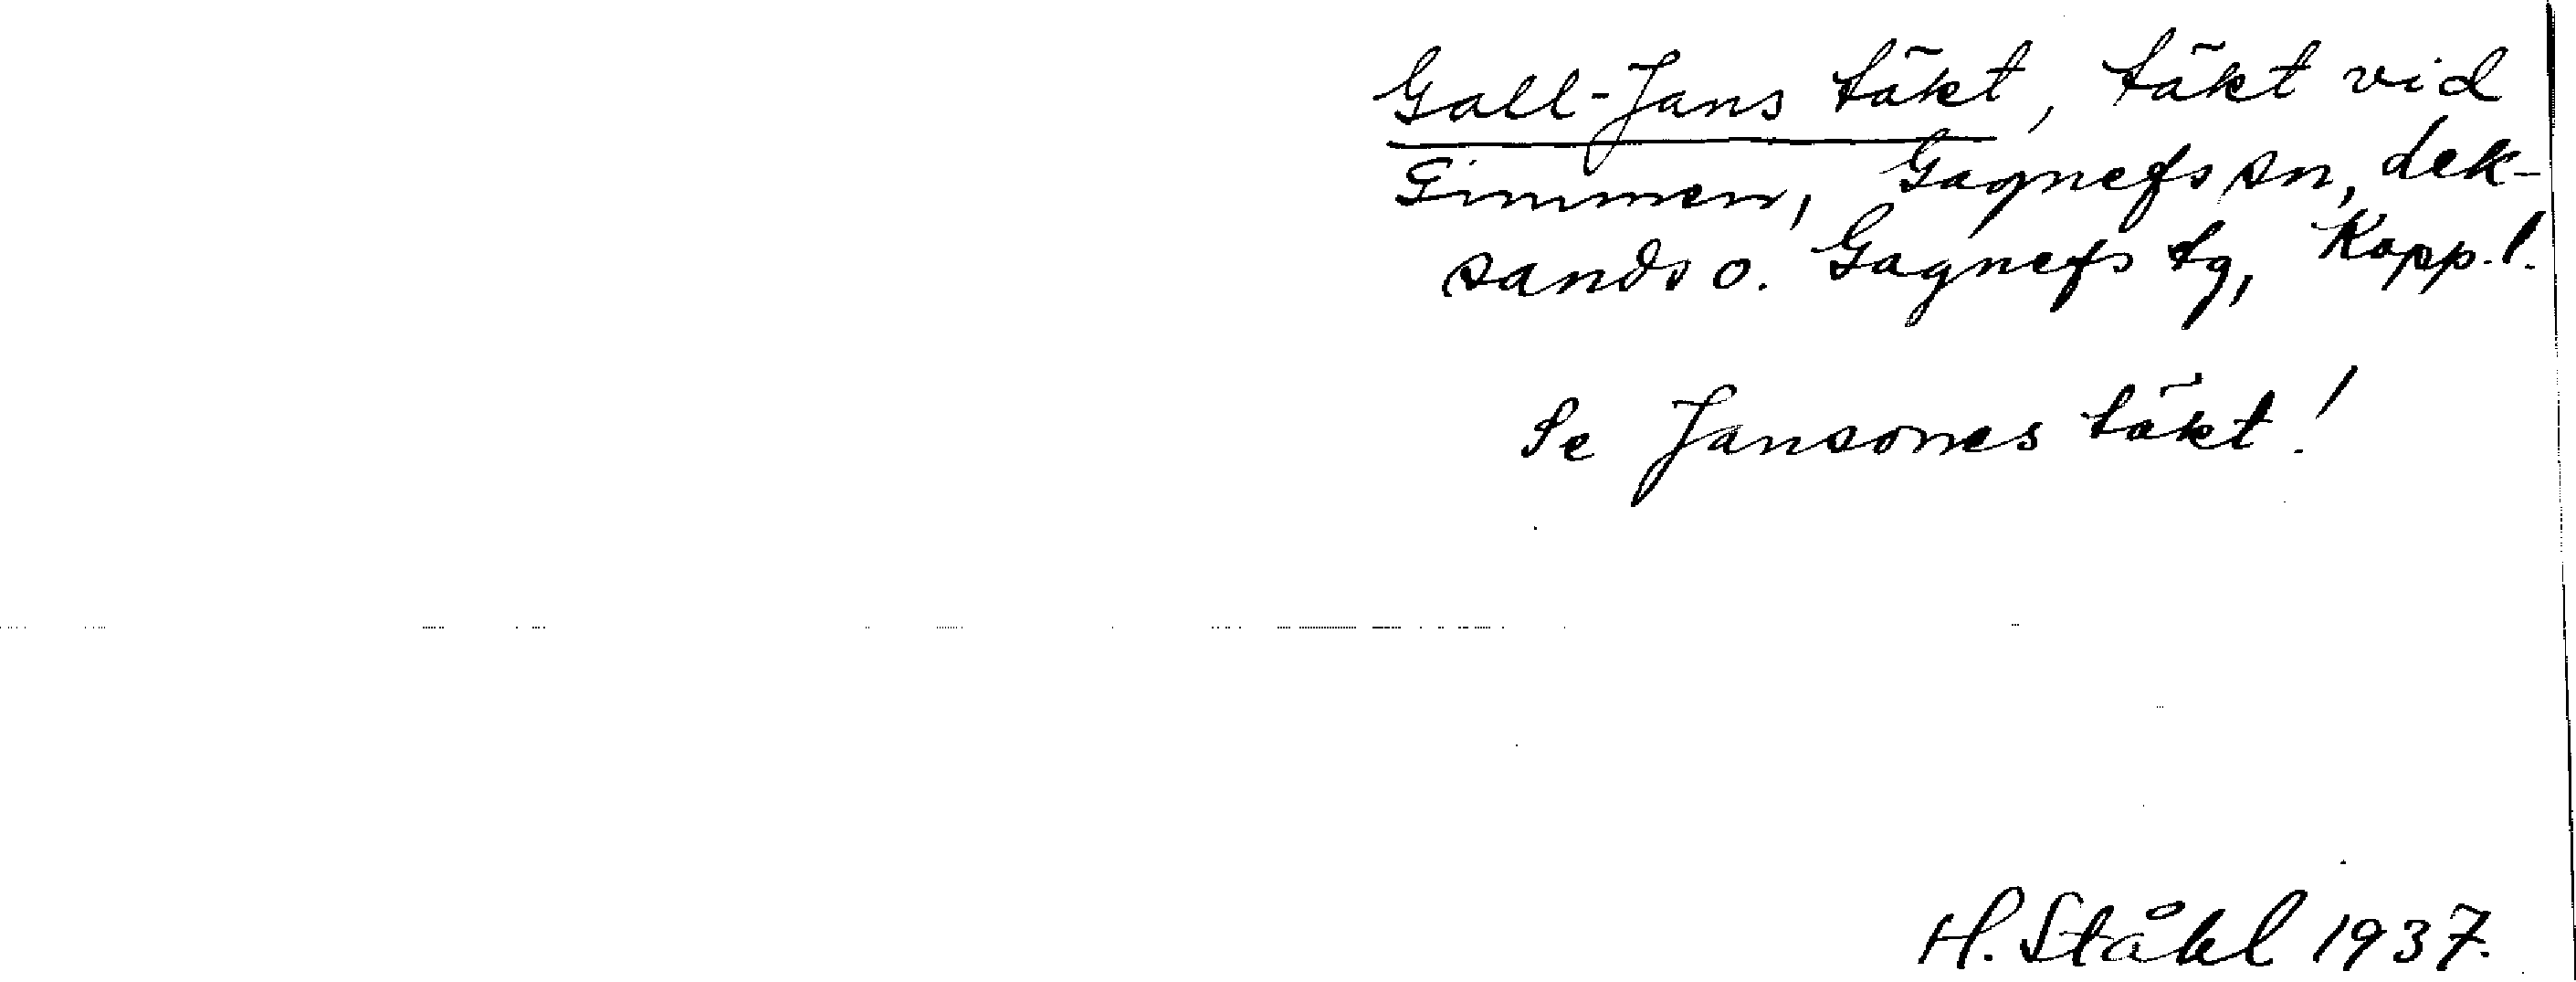 Gall-Jans täkt, täkt vid
Gimmen, Gagnefs sn, Lek-
sands o. Gagnefs tg, Kopp. l.
Se Jansones täkt!
H. Ståhl 1937.